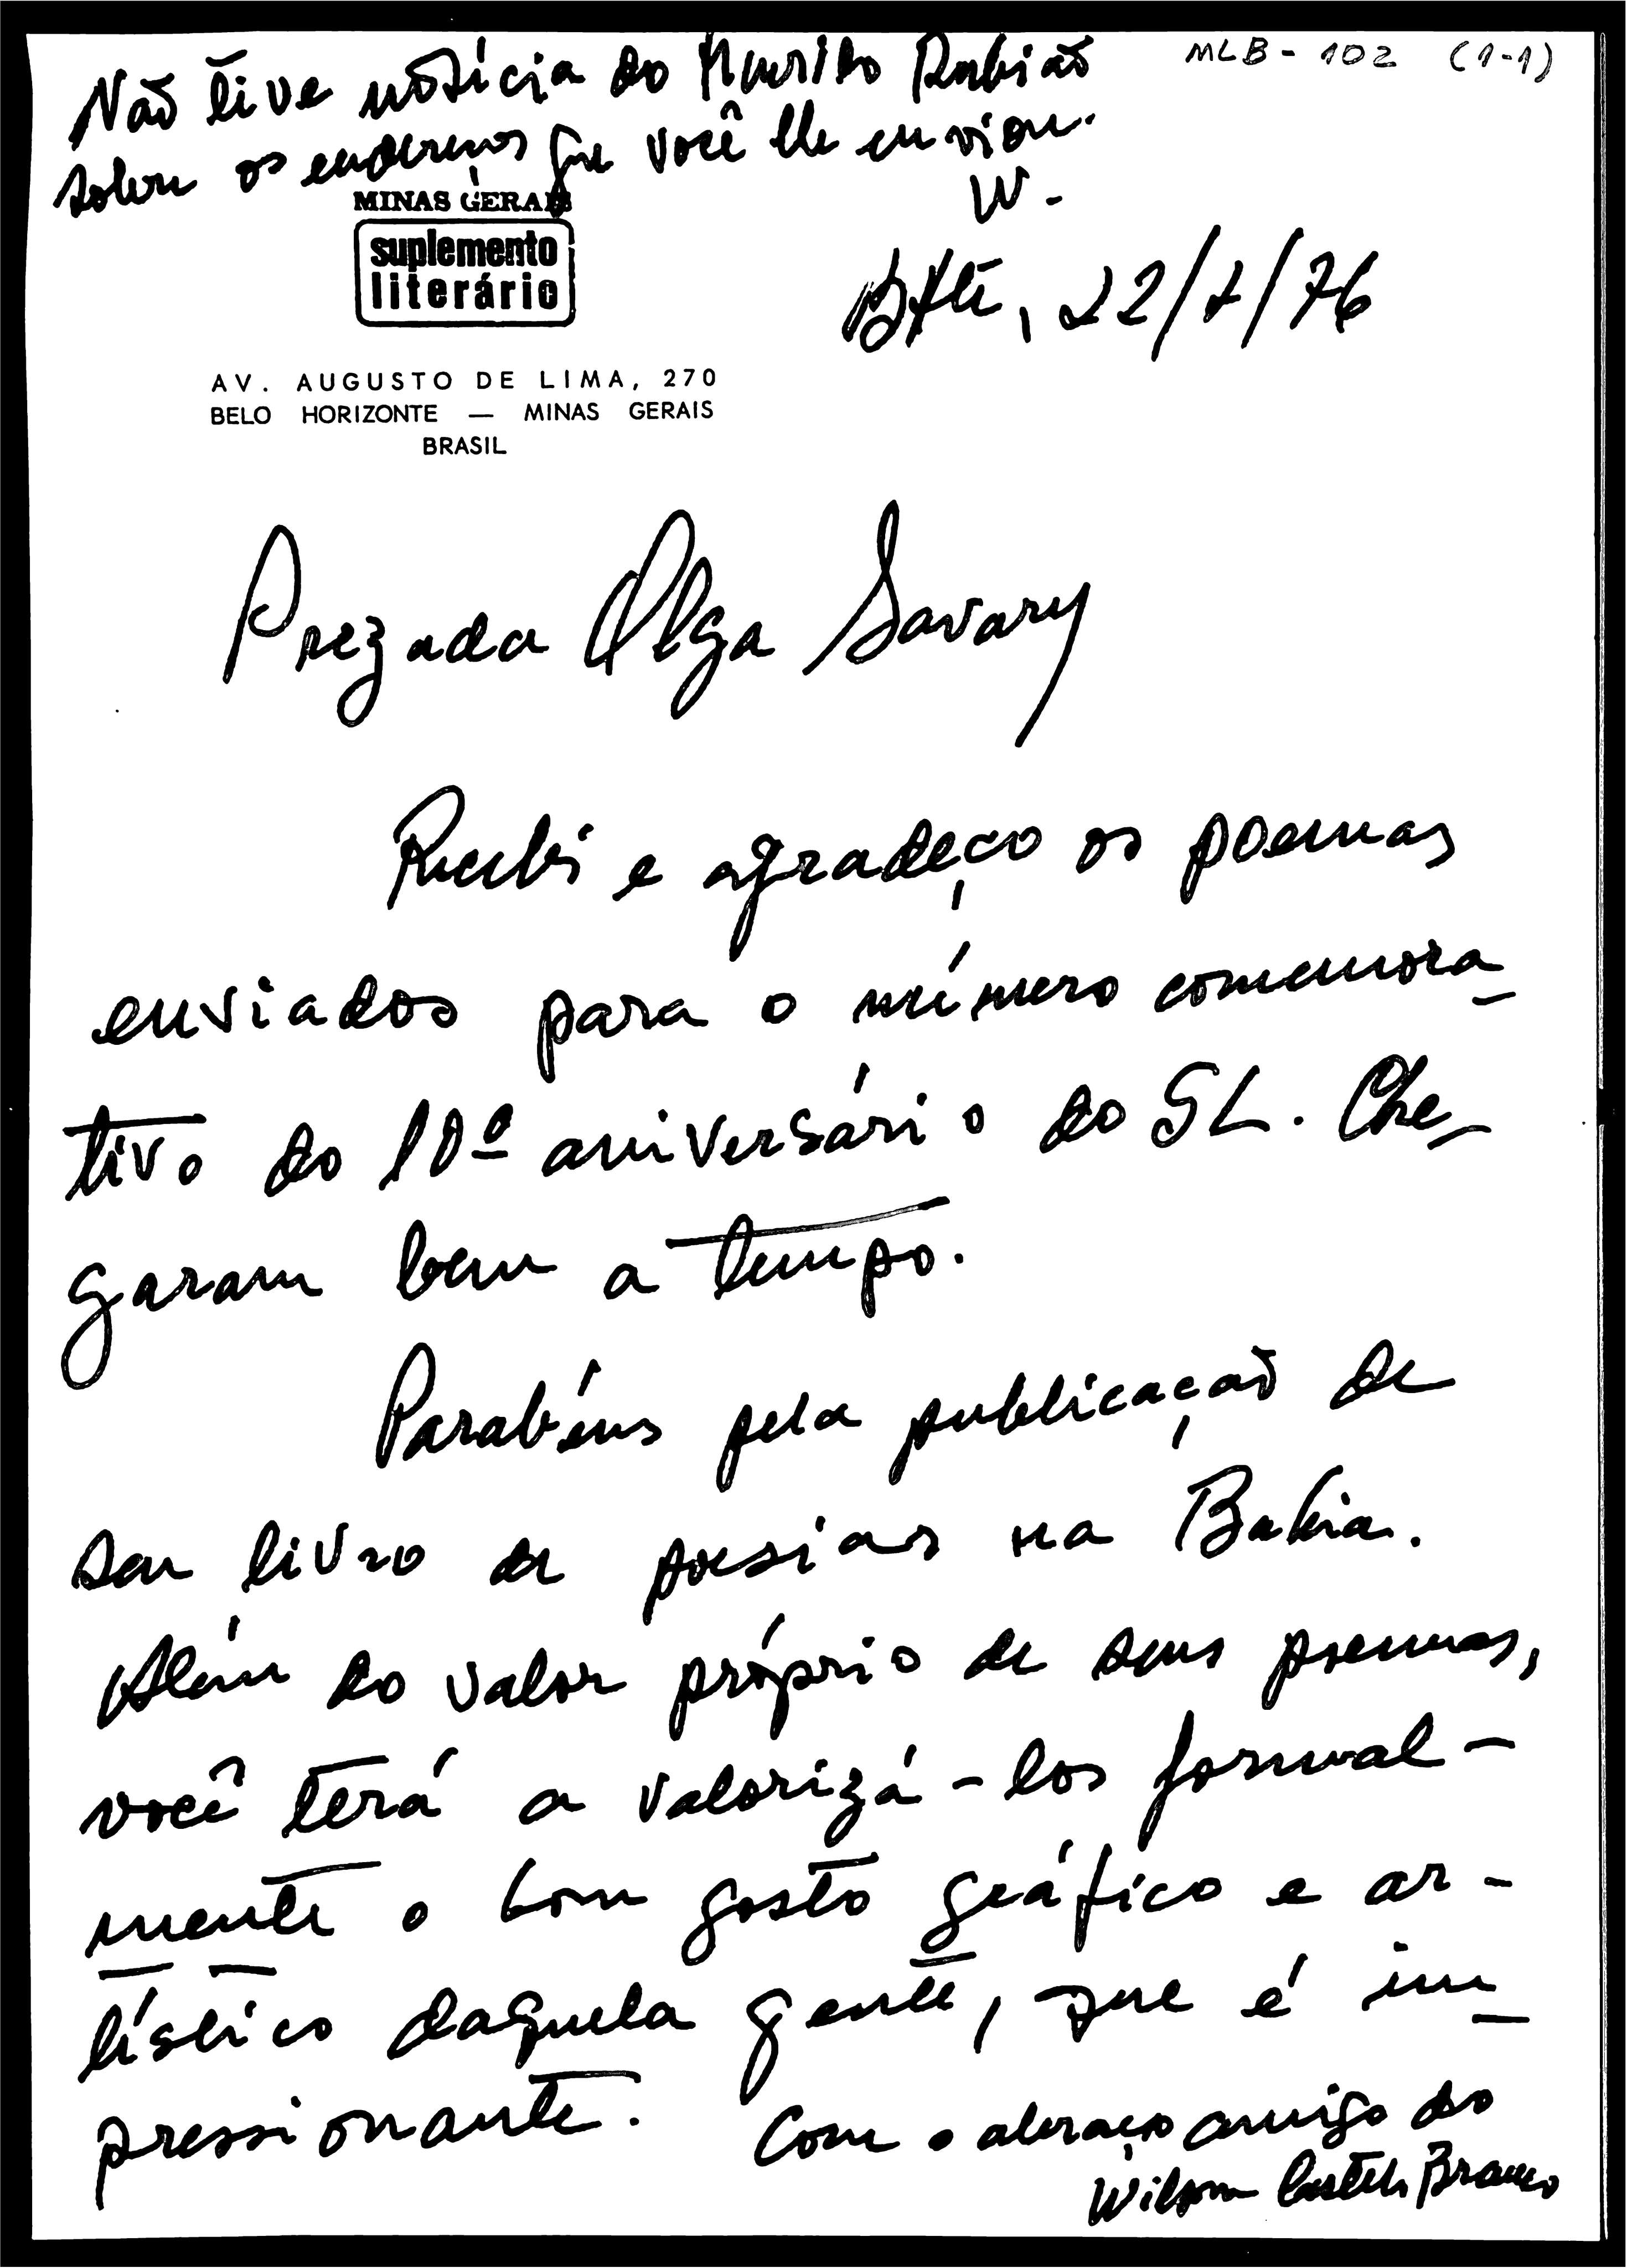 Não tive notícia do Murilo Rubião
sobre os endereços que você lhe enviou.
W.
MLB - 102 (1-1)
MINAS GERAIS
suplemento
literário
BHte, 22/7/76
AV. AUGUSTO DE LIMA, 270
BELO HORIZONTE — MINAS GERAIS
BRASIL
Prezada Olga Savary
Recebi e agradeço os poemas
enviados para o número comemora-
tivo do 10º aniversário do SL. Che-
garam bem a tempo.
Parabéns pela publicação de
seu livro de poesias na Bahia.
Além do valor próprio de seus poemas,
você terá a valorizá-los formal-
mente o bom gosto gráfico e ar-
tístico daquela gente, que é im-
pressionante.
Com o abraço amigo do
Wilson Castelo Branco